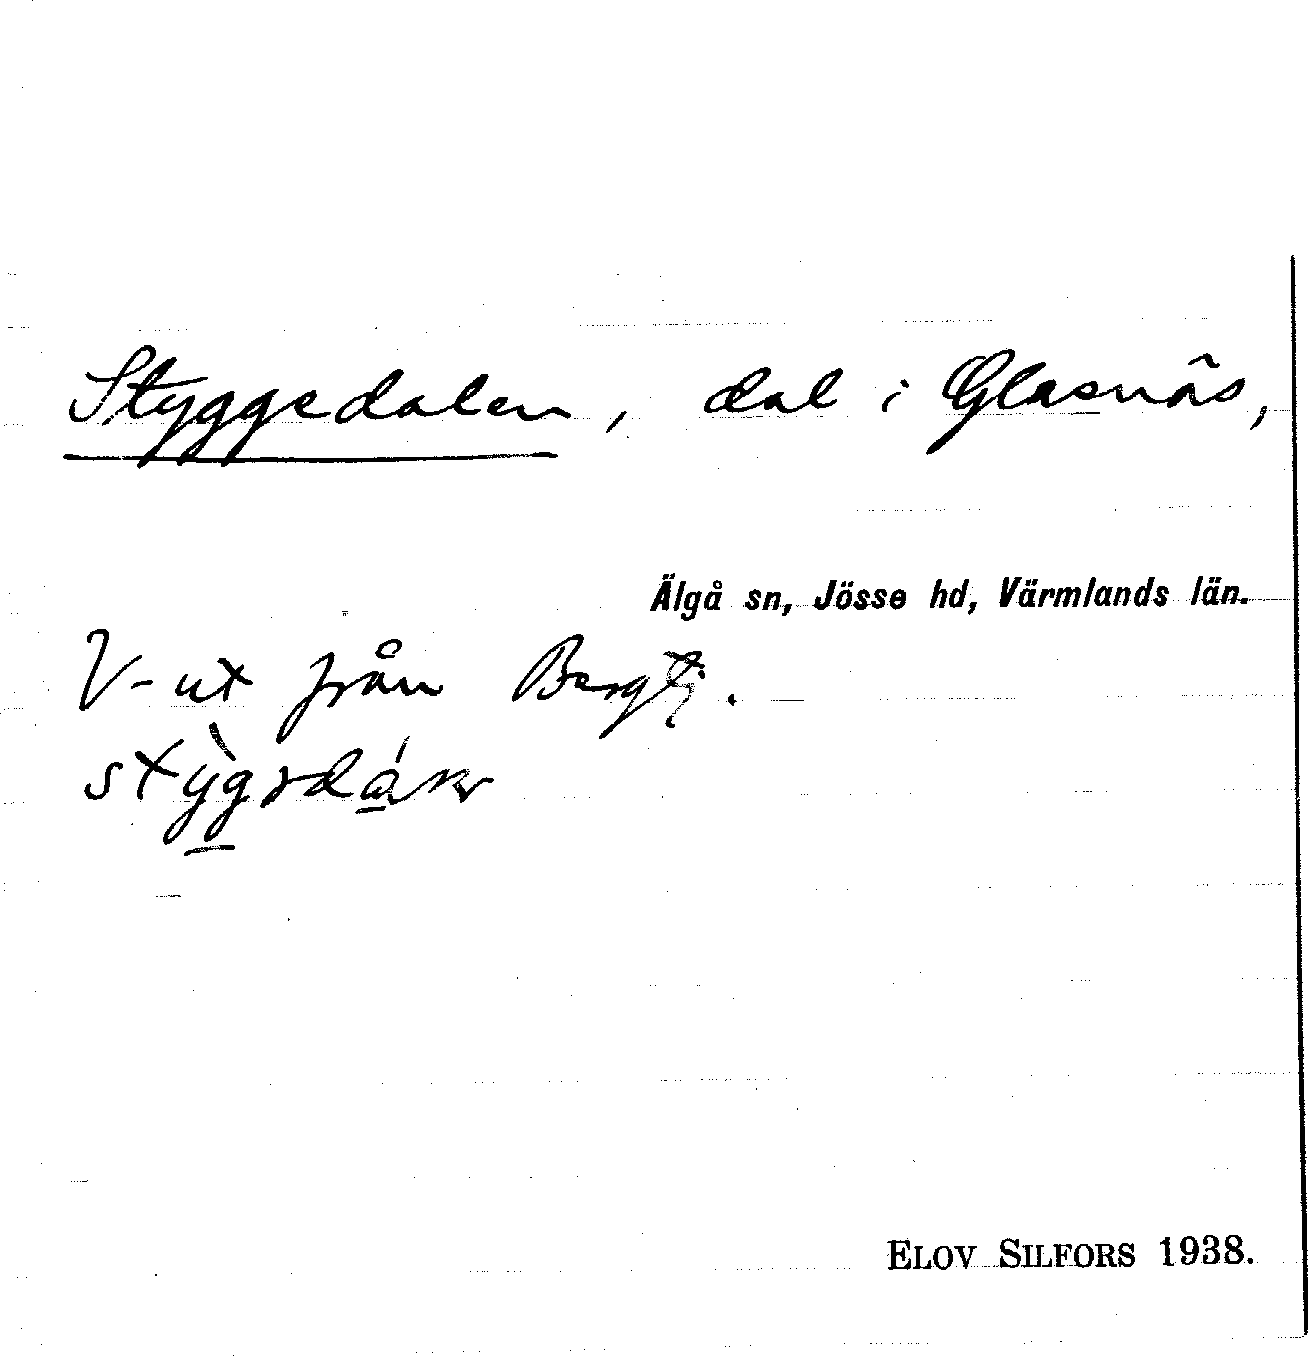 Styggedalen, dal i Glasnäs,
Älgå sn, Jösse hd, Värmlands län.
V-ut från Bergtj.
ELOV SILFORS 1938.